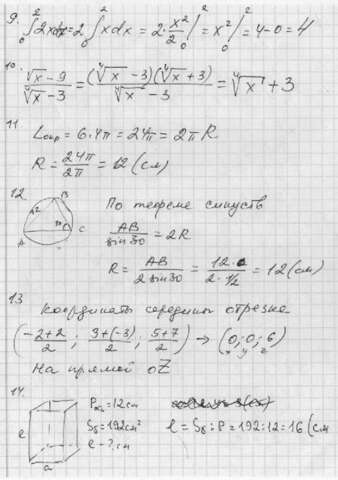 9. ∫₀² 2xdx = 2 ∫₀² xdx = 2 · x²/2 |₀² = x² |₀² = 4 - 0 = 4
10. (√x - 9)/(⁴√x - 3) = ((⁴√x - 3)(⁴√x + 3))/(⁴√x - 3) = ⁴√x + 3
11
Lокр = 6 · 4π = 24π = 2πR.
R = 24π/2π = 12 (см)
12
B
12
30
A
C
По теореме синусов
AB/sin30 = 2R
R = AB/2sin30 = 12/(2 · 1/2) = 12 (см)
13
Координаты середины отрезка
((-2+2)/2 ; (3+(-3))/2 ; (5+7)/2) → (0; 0; 6)
x y z
На прямой oZ
14.
Pосн = 12 см
Sб = 192 см²
l - ? см
l = Sб : P = 192 : 12 = 16 (см
l
a